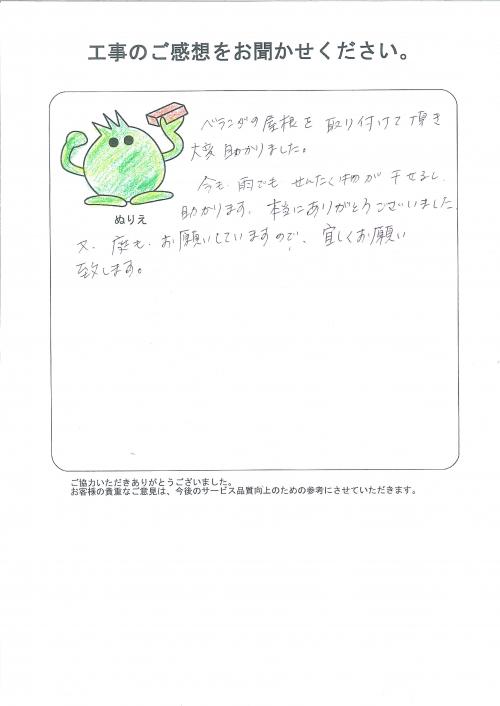 工事のご感想をお聞かせください。
ベランダの屋根を取り付けて頂き
大変助かりました。
今も雨でもせんたく物が干せるし、
助かります。本当にありがとうございました。
ぬりえ
又、庭も、お願いしていますので、宜しくお願い
致します。
ご協力いただきありがとうございました。
お客様の貴重なご意見は、今後のサービス品質向上のための参考にさせていただきます。